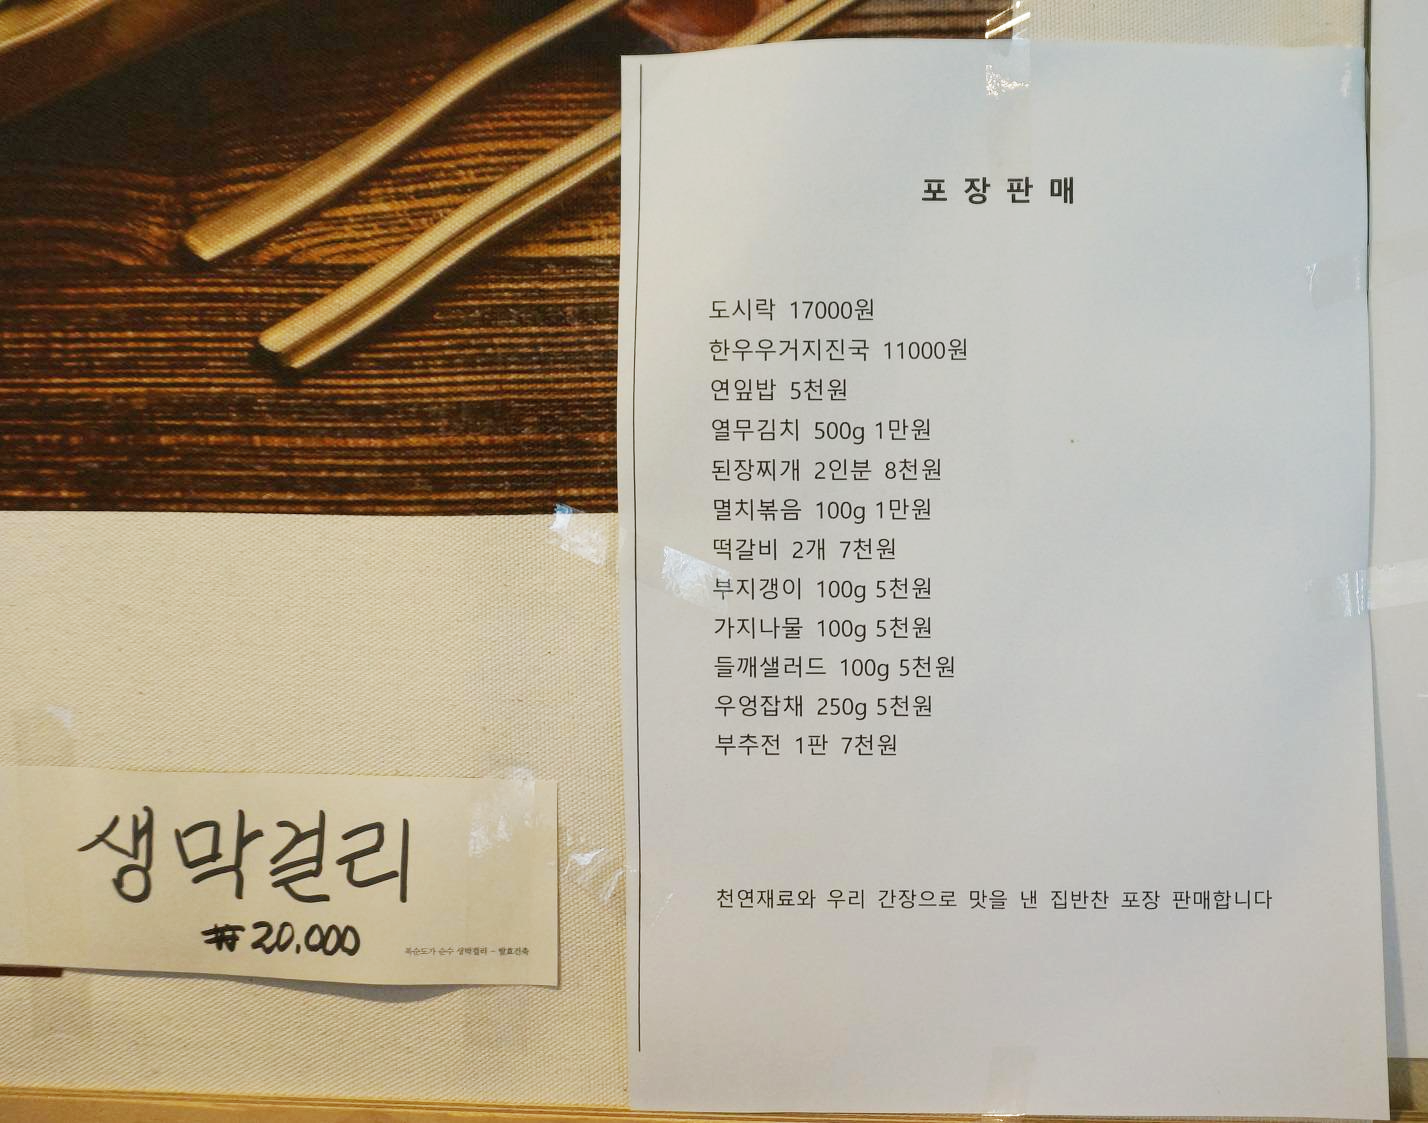 포장판매
도시락 17000원
한우우거지진국 11000원
연잎밥 5천원
열무김치 500g 1만원
된장찌개 2인분 8천원
멸치볶음 100g 1만원
떡갈비 2개 7천원
부지갱이 100g 5천원
가지나물 100g 5천원
들깨샐러드 100g 5천원
우엉잡채 250g 5천원
부추전 1판 7천원
천연재료와 우리 간장으로 맛을 낸 집반찬 포장 판매합니다
생막걸리
₩20.000
복순도가 순수 생막걸리 - 발효건축